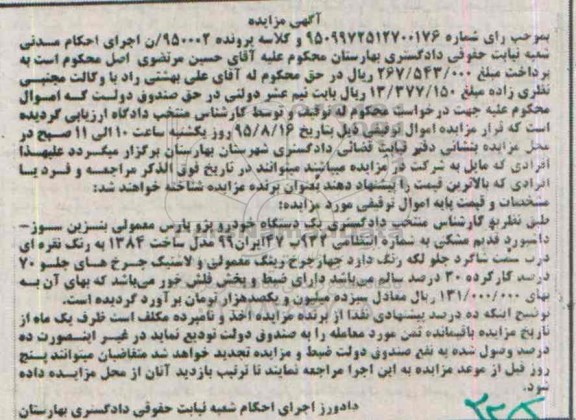 آگهی مزایده
بموجب رای شماره 9509972512700176 و کلاسه پرونده 950002/ن اجرای احکام مدنی
شعبه نیابت حقوقی دادگستری بهارستان محکوم علیه آقای حسین مرتضوی اصل محکوم است به
پرداخت مبلغ 267/543/000 ریال در حق محکوم له آقای علی بهشتی راد با وکالت مجتبی
نظری زاده مبلغ 13/377/150 ریال بابت نیم عشر دولتی در حق صندوق دولت که اموال
محکوم علیه جهت درخواست محکوم له توقیف و توسط کارشناس منتخب دادگاه ارزیابی گردیده
است که قرار مزایده اموال توقیفی ذیل بتاریخ 95/8/16 روز یکشنبه ساعت 10 الی 11 صبح در
محل مزایده بنشانی دفتر نیابت قضائی دادگستری شهرستان بهارستان برگزار میگردد علیهذا
افرادی که مایل به شرکت در مزایده میباشند میتوانند در تاریخ فوق الذکر مراجعه و فرد یا
افرادی که بالاترین قیمت را پیشنهاد دهند بعنوان برنده مزایده شناخته خواهند شد:
مشخصات و قیمت پایه اموال توقیفی مورد مزایده:
طبق نظریه کارشناس منتخب دادگستری یک دستگاه خودرو پژو پارس معمولی بنزین سوز-
داشبورد قدیم مشکی به شماره انتظامی 932ب47ایران99 مدل ساخت 1384 به رنگ نقره ای
درب سمت شاگرد جلو لکه رنگ دارد چهارچرخ رینگ معمولی و لاستیک چرخ های جلو 70
درصد کارکرده 30 درصد سالم می‌باشد دارای ضبط و پخش فلش خور می‌باشد که بهای آن به
بهای 131/000/000 ریال معادل سیزده میلیون و یکصدهزار تومان برآورد گردیده است.
توضیح اینکه ده درصد پیشنهادی نقدا از برنده مزایده اخذ و نامبرده مکلف است ظرف یک ماه از
تاریخ مزایده باقیمانده ثمن مورد معامله را به صندوق دولت تودیع نماید در غیر اینصورت ده
درصد وصول شده به نفع صندوق دولت ضبط و مزایده تجدید خواهد شد متقاضیان میتوانند پنج
روز قبل از موعد مزایده به این اجرا مراجعه نمایند تا ترتیب بازدید آنان از محل مزایده داده
شود.
دادورز اجرای احکام شعبه نیابت حقوقی دادگستری بهارستان